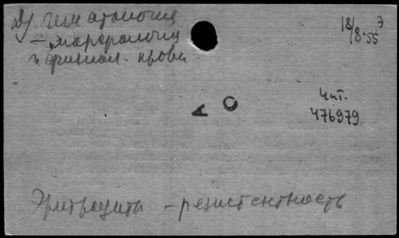 2) гематология
— морфология
и физиол. крови
18/8-55 э
А О
Чит.
476979
Эритроциты — резистентность